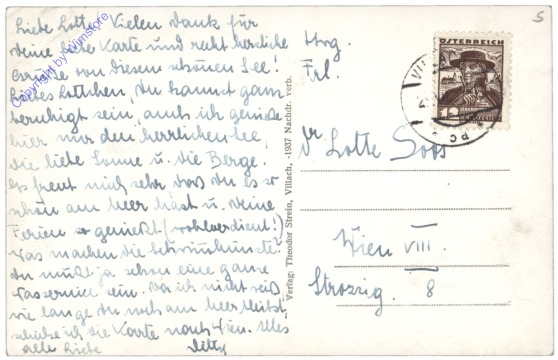 Liebe Lotte! Vielen Dank für
deine liebe Karte und recht herzliche
Grüsse von diesem schönen See!
Liebes Lottchen, du kannst ganz
beruhigt sein, auch ich genieße
hier nur den herrlichen See,
die liebe Sonne u. die Berge.
Es freut mich sehr, daß du es so
schön am Meer hast u. deine
Ferien so genießt (wohlverdient!)
Was machen die Schwimmkünste?
Du mußt ja schon eine ganze
Wassernixe sein. Da ich nicht weiß
wie lange du noch am Meer bleibst,
schicke ich die Karte nach Wien. Alles
alle Liebe Ditty
Copyright by Wimstore
Verlag: Theodor Strein, Villach, -1937 Nachdr. verb.
S
ÖSTERREICH
12
VILLA
Frl.
Dr Lotte Soos
Wien VIII.
Strozzig. 8